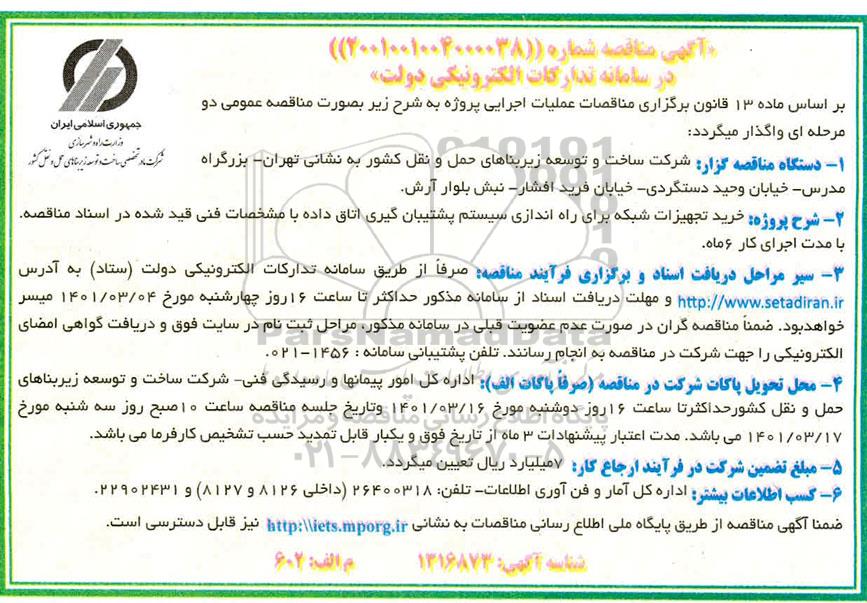 «آگهی مناقصه شماره ((2001001004000038))
در سامانه تدارکات الکترونیکی دولت»
جمهوری اسلامی ایران
وزارت راه و شهرسازی
شرکت مادر تخصصی ساخت و توسعه زیربناهای حمل و نقل کشور
بر اساس ماده ۱۳ قانون برگزاری مناقصات عملیات اجرایی پروژه به شرح زیر بصورت مناقصه عمومی دو
مرحله ای واگذار میگردد:
۱- دستگاه مناقصه گزار: شرکت ساخت و توسعه زیربناهای حمل و نقل کشور به نشانی تهران- بزرگراه
مدرس- خیابان وحید دستگردی- خیابان فرید افشار- نبش بلوار آرش.
۲- شرح پروژه: خرید تجهیزات شبکه برای راه اندازی سیستم پشتیبان گیری اتاق داده با مشخصات فنی قید شده در اسناد مناقصه.
با مدت اجرای کار ۶ماه.
۳- سیر مراحل دریافت اسناد و برگزاری فرآیند مناقصه: صرفاً از طریق سامانه تدارکات الکترونیکی دولت (ستاد) به آدرس
http://www.setadiran.ir و مهلت دریافت اسناد از سامانه مذکور حداکثر تا ساعت ۱۶روز چهارشنبه مورخ ۱۴۰۱/۰۳/۰۴ میسر
خواهدبود. ضمناً مناقصه گران در صورت عدم عضویت قبلی در سامانه مذکور، مراحل ثبت نام در سایت فوق و دریافت گواهی امضای
الکترونیکی را جهت شرکت در مناقصه به انجام رسانند. تلفن پشتیبانی سامانه : ۱۴۵۶-۰۲۱.
ParsNamadData
۴- محل تحویل پاکات شرکت در مناقصه (صرفاً پاکات الف): اداره کل امور پیمانها و رسیدگی فنی- شرکت ساخت و توسعه زیربناهای
حمل و نقل کشورحداکثرتا ساعت ۱۶روز دوشنبه مورخ ۱۴۰۱/۰۳/۱۶ وتاریخ جلسه مناقصه ساعت ۱۰صبح روز سه شنبه مورخ
پایگاه اطلاع رسانی مناقصه و مزایده
۱۴۰۱/۰۳/۱۷ می باشد. مدت اعتبار پیشنهادات ۳ ماه از تاریخ فوق و یکبار قابل تمدید حسب تشخیص کارفرما می باشد.
۰۲۱-۸۸۳۴۹۶۷۰-۵
۵- مبلغ تضمین شرکت در فرآیند ارجاع کار: ۷میلیارد ریال تعیین میگردد.
۶- کسب اطلاعات بیشتر: اداره کل آمار و فن آوری اطلاعات- تلفن: ۲۶۴۰۰۳۱۸ (داخلی ۸۱۲۶ و ۸۱۲۷) و ۲۲۹۰۲۴۳۱.
ضمنا آگهی مناقصه از طریق پایگاه ملی اطلاع رسانی مناقصات به نشانی http:\\iets.mporg.ir نیز قابل دسترسی است.
شناسه آگهی: ۱۳۱۶۸۷۳ م الف: ۶۰۲